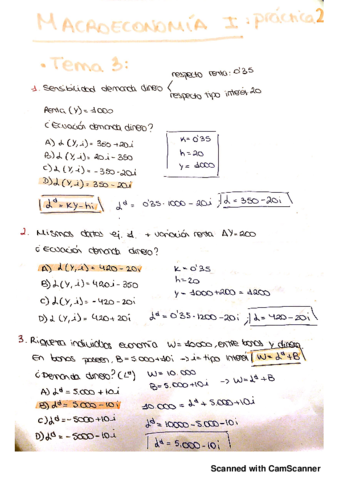 MACROECONOMÍA I : práctica 2
• Tema 3:
1. Sensibilidad demanda dinero respecto renta: 0'35
respecto tipo interés 20
Renta (Y) = 1000
¿Ecuación demanda dinero?
A) L (Y,i) = 350+20i
B) L (Y,i) = 20i - 350
C) L (Y,i) = -350-20i
D) L (Y,i) = 350-20i
K = 0'35
h = 20
Y = 1000
Ld = KY-hi
Ld = 0'35·1000-20i
L = 350-20i
2. Mismos datos ej. 1 + variación renta ΔY=200
¿Ecuación demanda dinero?
A) L (Y,i) = 420-20i
B) L (Y,i) = 420i
C) L (Y,i) = -420-20i
D) L (Y,i) = 420+20i
K = 0'35
h = 20
Y = 1000+200 = 1200
Ld = 0'35·1200-20i
L = 420-20i
3. Riqueza individuos economía W=10000, entre bonos y dinero
En bonos poseen, B=5000+10i → i = tipo interés
W = Ld+B
¿Demanda dinero? (Ld)
A) Ld = 5.000+10i
B) Ld = 5.000-10i
C) Ld = -5000+10i
D) Ld = -5000-10i
W = 10.000
B = 5.000+10i
→ W = Ld+B
10.000 = Ld + 5.000+10i
Ld = 10000-5000-10i
Ld = 5.000-10i
Scanned with CamScanner